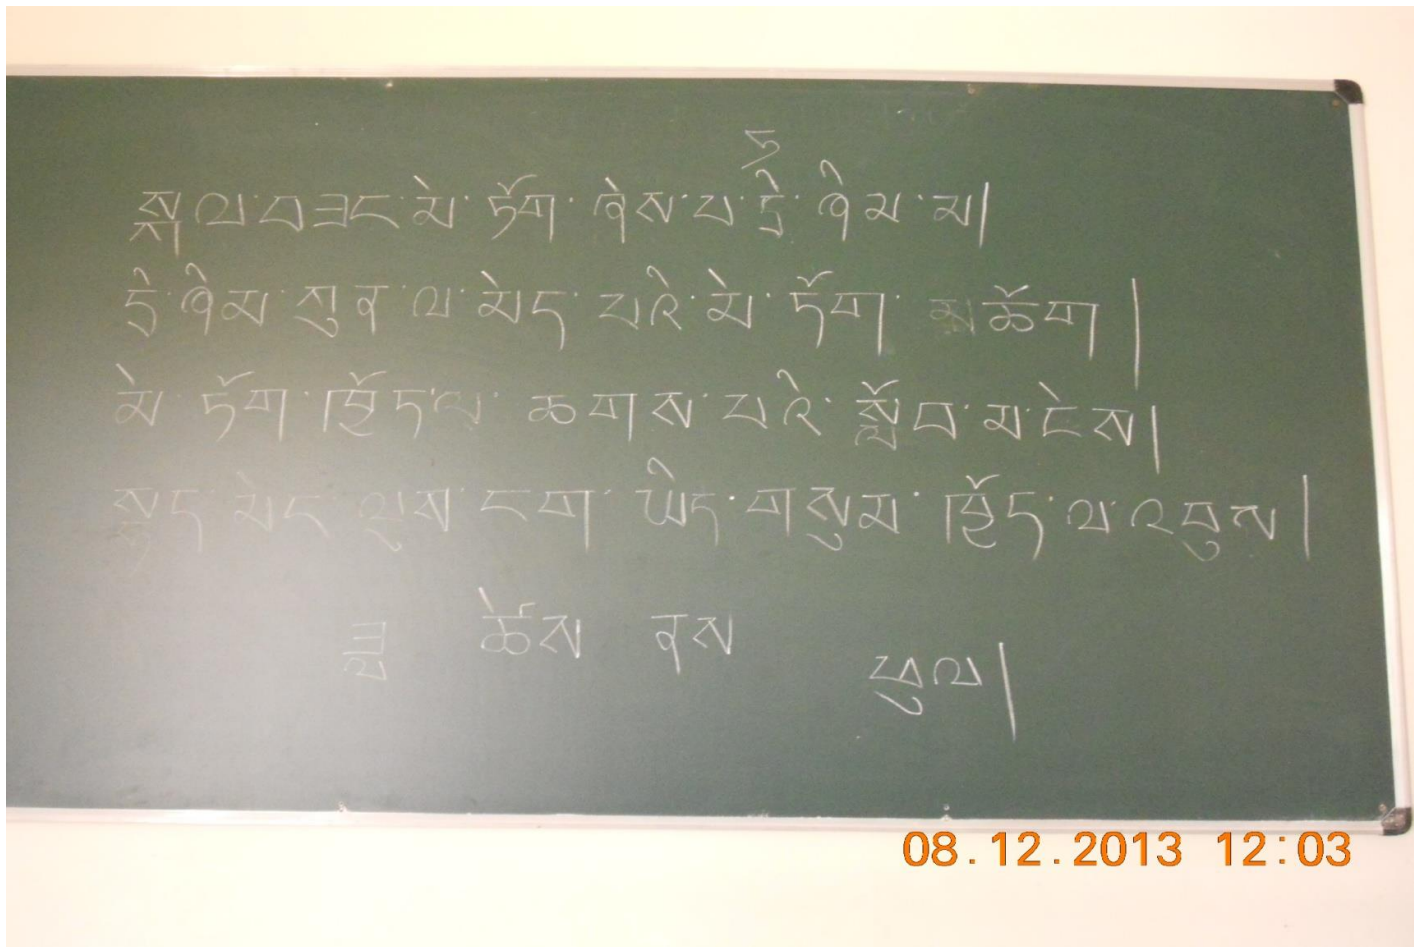 སྐལ་བཟང་མེ་ཏོག་ཞེས་པ་དྲི་ཞིམ་མ།
དྲི་ཞིམ་ཀུན་ལ་མེད་པའི་མེ་ཏོག་མཆོག།
མེ་ཏོག་ཁྱོད་ལ་ཆགས་པའི་སློབ་མ་ངེས།
མེད་ལུས་ངག་ཡིད་གསུམ་ཁྱོད་ལ་འབུས།
ཟླ ཚེས ནས ཕུལ།
08.12.2013 12:03